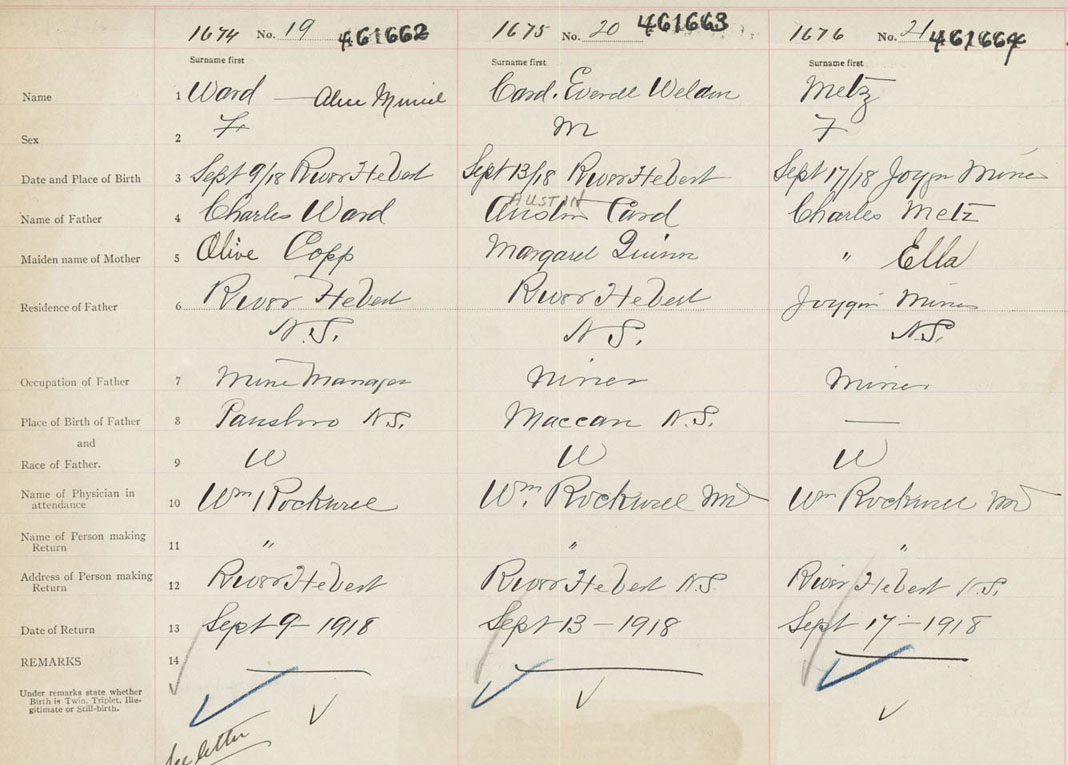 1674 No. 19 461662 1675 No. 20 461663 1676 No. 21 461664
Surname first Surname first Surname first
Name 1 Ward — Alice Muriel Card. Everett Weldon Metz
Sex 2 F M F
Date and Place of Birth 3 Sept 9/18 River Hebert Sept 13/18 River Hebert Sept 17/18 Joggin Mines
AUSTIN
Name of Father 4 Charles Ward Austin Card Charles Metz
Maiden name of Mother 5 Olive Copp Margaret Quinn " Ella
Residence of Father 6 River Hebert River Hebert Joggin Mines
N.S. N.S. N.S.
Occupation of Father 7 Mine Manager Miner Miner
Place of Birth of Father 8 Parrsboro N.S. Maccan N.S. —
and
Race of Father. 9 W W W
Name of Physician in attendance 10 Wm Rockwell Wm. Rockwell MD Wm Rockwell MD
Name of Person making Return 11 " " "
Address of Person making Return 12 River Hebert River Hebert N.S. River Hebert N.S.
Date of Return 13 Sept 9 - 1918 Sept 13 - 1918 Sept 17 - 1918
REMARKS 14
Under remarks state whether
Birth is Twin, Triplet, Ille-
gitimate or Still-birth.
See letter